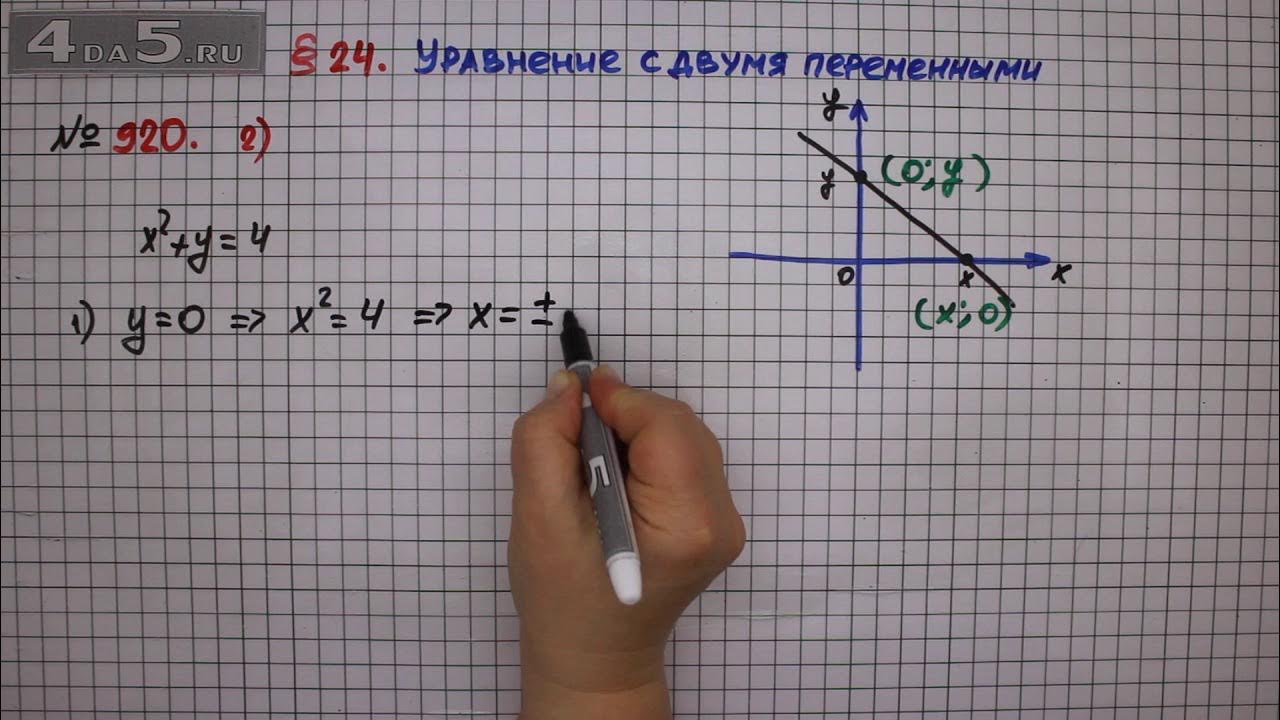 4DA5.RU
§ 24. Уравнение с двумя переменными
№ 920. 2)
x²+y=4
1) y=0 => x²=4 => x=±
y
y (0;y)
0 x x
(x;0)
5